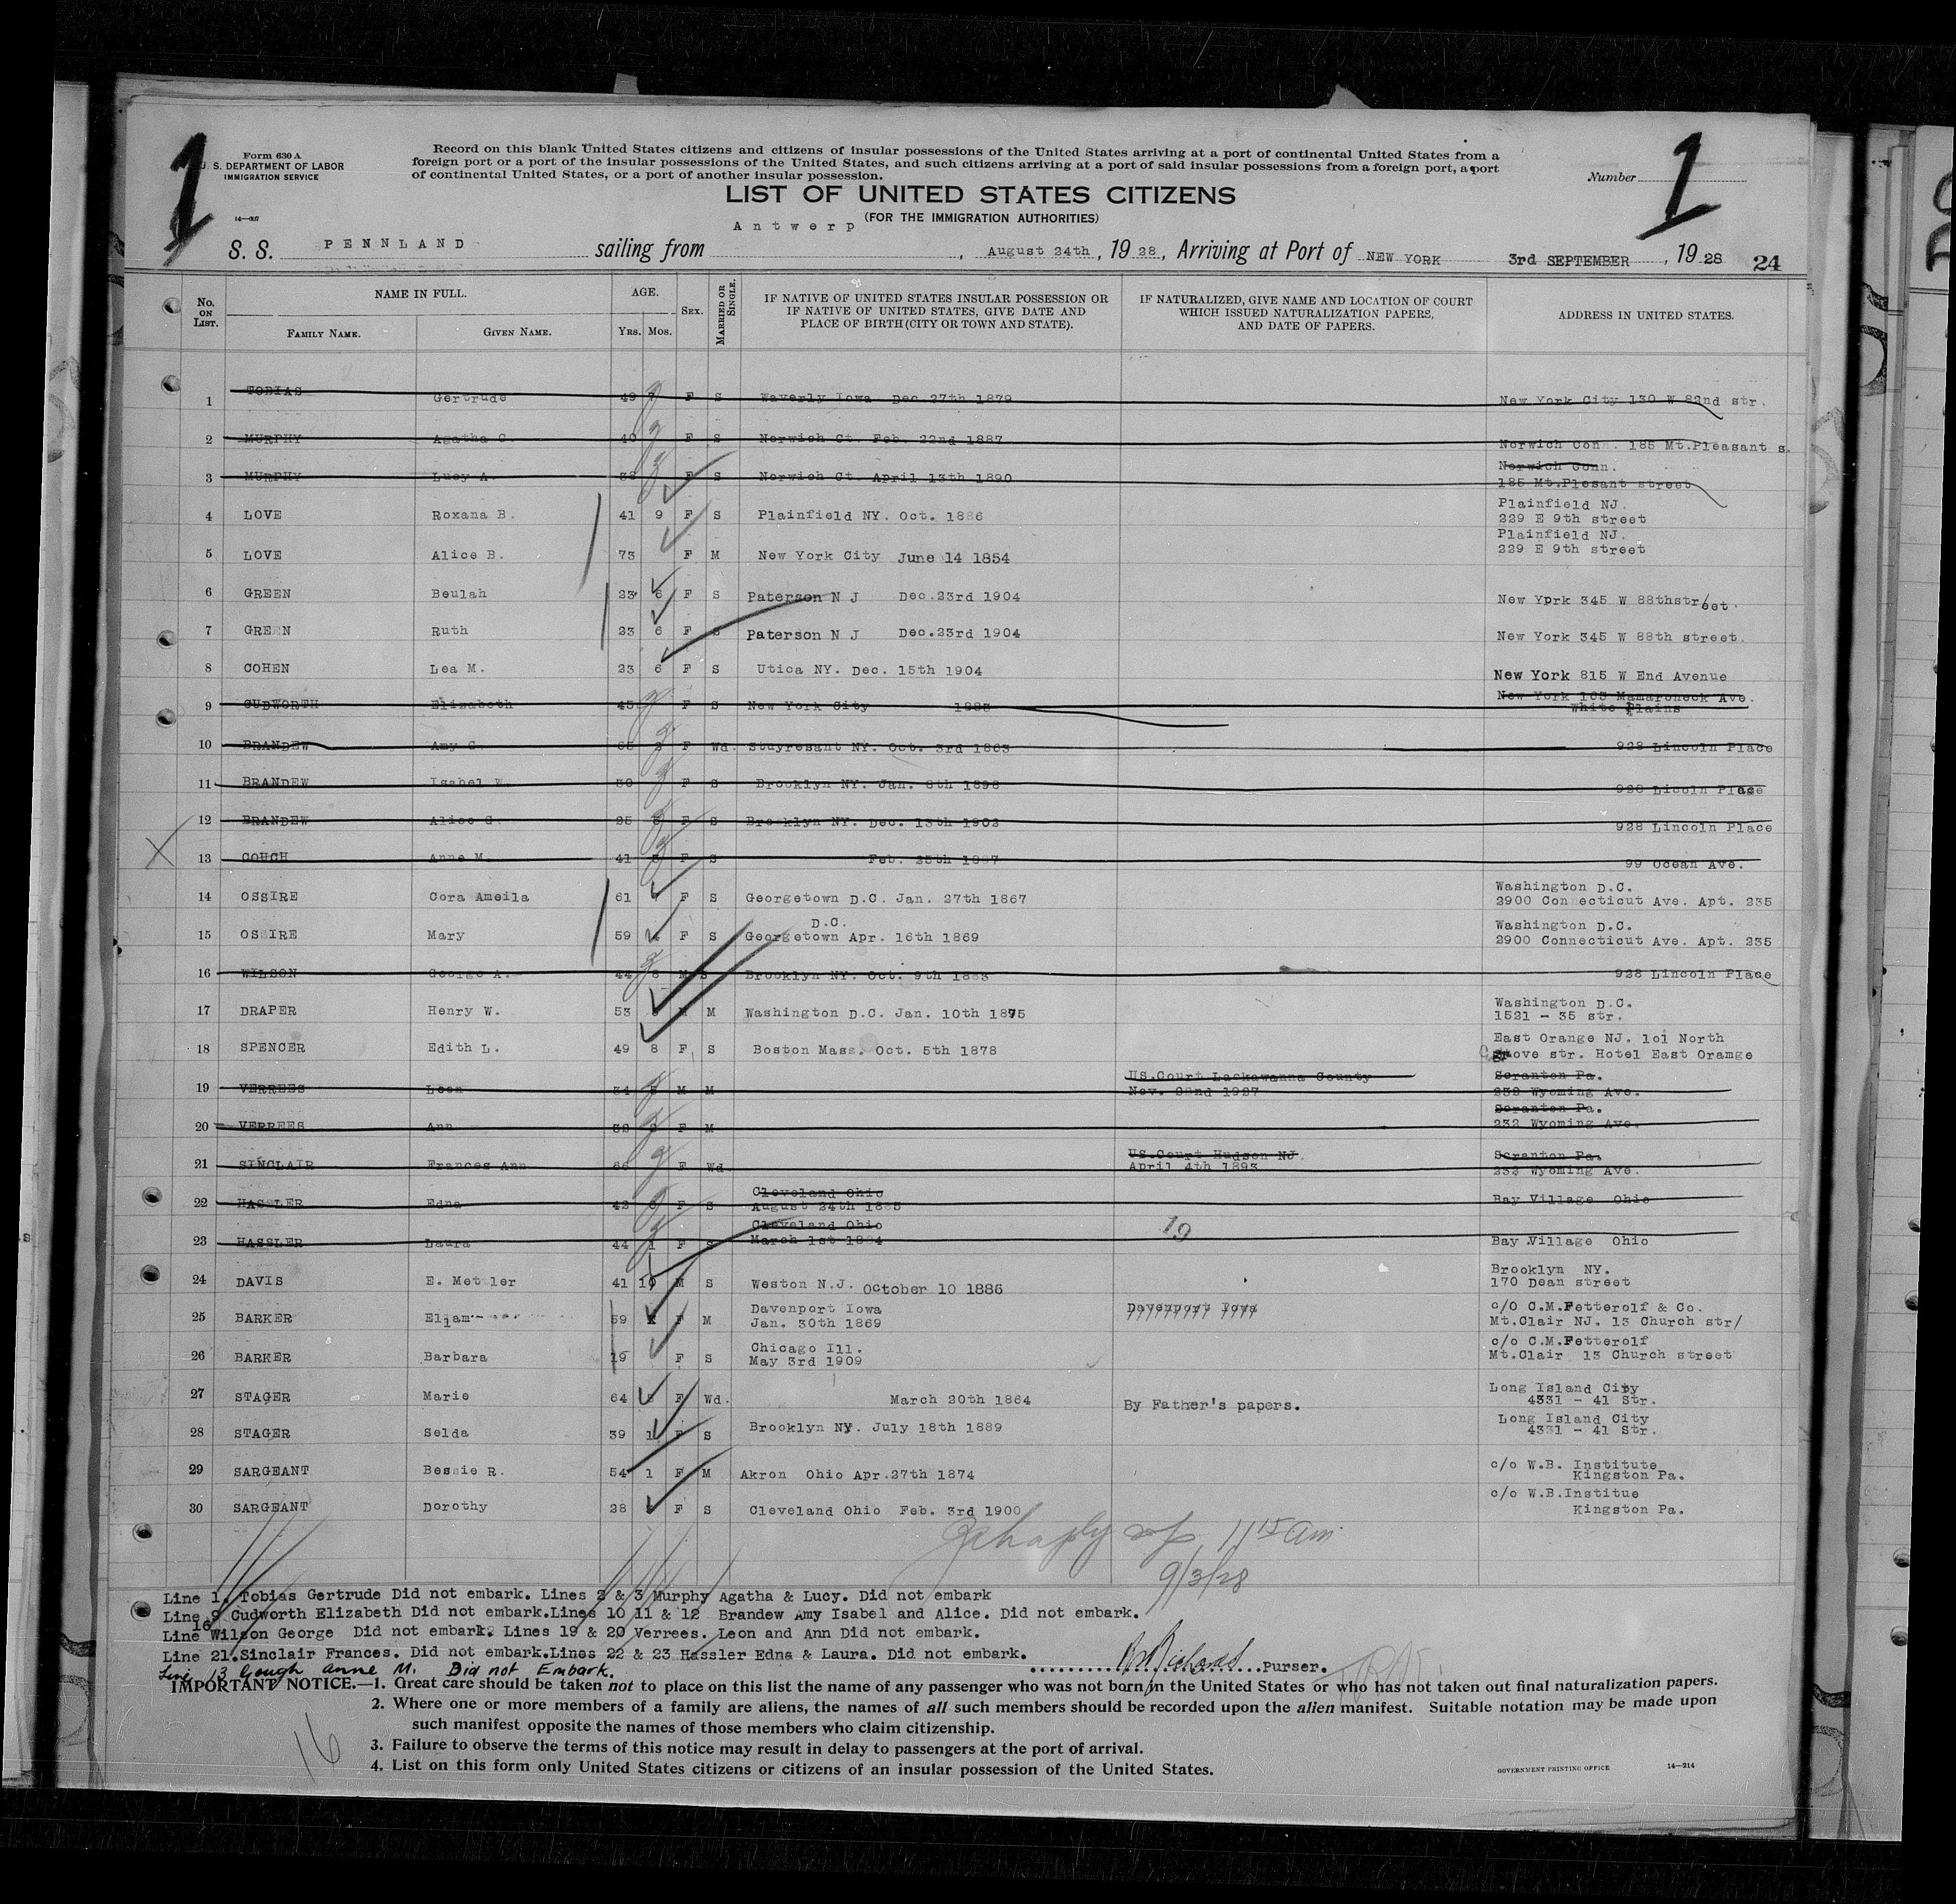 1
1
Form 630 A
U. S. DEPARTMENT OF LABOR
IMMIGRATION SERVICE
Record on this blank United States citizens and citizens of insular possessions of the United States arriving at a port of continental United States from a
foreign port or a port of the insular possessions of the United States, and such citizens arriving at a port of said insular possessions from a foreign port, a port
of continental United States, or a port of another insular possession.
Number
LIST OF UNITED STATES CITIZENS
(FOR THE IMMIGRATION AUTHORITIES)
S. S. PENNLAND sailing from Antwerp, August 24th, 1928, Arriving at Port of NEW YORK 3rd SEPTEMBER, 1928 24
No. ON LIST. NAME IN FULL. AGE. SEX. MARRIED OR SINGLE. IF NATIVE OF UNITED STATES INSULAR POSSESSION OR IF NATIVE OF UNITED STATES, GIVE DATE AND PLACE OF BIRTH (CITY OR TOWN AND STATE). IF NATURALIZED, GIVE NAME AND LOCATION OF COURT WHICH ISSUED NATURALIZATION PAPERS, AND DATE OF PAPERS. ADDRESS IN UNITED STATES.
FAMILY NAME. GIVEN NAME. YRS. MOS.
1 TOBIAS Gertrude 49 F S Waverly Iowa Dec 27th 1879 New York City 130 W 82nd str.
2 MURPHY Agatha C. 40 F S Norwich Ct. Feb. 22nd 1887 Norwich Conn. 185 Mt.Pleasant s.
3 MURPHY Lucy A. 38 F S Norwich Ct. April 13th 1890 Norwich Conn.
185 Mt.Plesant street
4 LOVE Roxana B. 41 9 F S Plainfield NY. Oct. 1886 Plainfield NJ.
229 E 9th street
5 LOVE Alice B. 73 F M New York City June 14 1854 Plainfield NJ.
229 E 9th street
6 GREEN Beulah 23 6 F S Paterson N J Dec.23rd 1904 New Yprk 345 W 88thstreet.
7 GREEN Ruth 23 6 F S Paterson N J Dec.23rd 1904 New York 345 W 88th street.
8 COHEN Lea M. 23 6 F S Utica NY. Dec. 15th 1904 New York 815 W End Avenue
9 CUDWORTH Elizabeth 45 F S New York City 1883 New York 163 Mamaroneck Ave.
White Plains
10 BRANDEW Amy C. 65 F Wd. Stuyresant NY. Oct. 3rd 1863 928 Lincoln Place
11 BRANDEW Isabel W. 30 F S Brooklyn NY. Jan. 8th 1898 928 Licoln Place
12 BRANDEW Alice C. 25 F S Brooklyn NY. Dec. 13th 1902 928 Lincoln Place
13 COUCH Anne M. 41 F S Feb. 25th 1887 99 Ocean Ave.
14 OSSIRE Cora Ameila 61 F S Georgetown D.C. Jan. 27th 1867 Washington D.C.
2900 Connecticut Ave. Apt. 235
15 OSSIRE Mary 59 F S D.C.
Georgetown Apr. 16th 1869 Washington D.C.
2900 Connecticut Ave. Apt. 235
16 WILSON George A. 44 8 M S Brooklyn NY. Oct. 9th 1883 928 Lincoln Place
17 DRAPER Henry W. 53 M M Washington D.C. Jan. 10th 1875 Washington D.C.
1521 - 35 str.
18 SPENCER Edith L. 49 8 F S Boston Mass. Oct. 5th 1878 East Orange NJ. 101 North
Grove str. Hotel East Oramge
19 VERREES Leon 34 M M US.Court Lackawanna County
Nov. 22nd 1927 Scranton Pa.
232 Wyoming Ave.
20 VERREES Ann 32 F M Scranton Pa.
232 Wyoming Ave.
21 SINCLAIR Frances Ann 66 F Wd. US.Court Hudson NJ.
April 4th 1893 Scranton Pa.
232 Wyoming Ave.
22 HASSLER Edna 42 F S Cleveland Ohio
August 24th 1885 Bay Village Ohio
23 HASSLER Laura 44 F S Cleveland Ohio
March 1st 1884 19 Bay Village Ohio
24 DAVIS E. Metzler 41 10 M S Weston N.J. October 10 1886 Brooklyn NY.
170 Dean street
25 BARKER 59 F M Davenport Iowa
Jan. 30th 1869 Davenport Iowa c/o C.M.Fetterolf & Co.
Mt.Clair NJ. 13 Church str/
26 BARKER Barbara 19 F S Chicago Ill.
May 3rd 1909 c/o C.M.Fetterolf
Mt.Clair 13 Church street
27 STAGER Marie 64 F Wd. March 20th 1864 By Father's papers. Long Island City
4331 - 41 Str.
28 STAGER Selda 39 1 F S Brooklyn NY. July 18th 1889 Long Island City
4331 - 41 Str.
29 SARGEANT Bessie R. 54 1 F M Akron Ohio Apr.27th 1874 c/o W.B. Institute
Kingston Pa.
30 SARGEANT Dorothy 28 F S Cleveland Ohio Feb. 3rd 1900 c/o W.B.Institue
Kingston Pa.
11 15 am
9/3/28
Line 1. Tobias Gertrude Did not embark. Lines 2 & 3 Murphy Agatha & Lucy. Did not embark
Line 9 Cudworth Elizabeth Did not embark.Lines 10 11 & 12 Brandew Amy Isabel and Alice. Did not embark.
Line 16 Wilson George Did not embark. Lines 19 & 20 Verrees. Leon and Ann Did not embark.
Line 21.Sinclair Frances. Did not embark.Lines 22 & 23 Hassler Edna & Laura. Did not embark.
Line 13 Gough Anne M. Did not Embark.
Richards Purser.
IMPORTANT NOTICE.—1. Great care should be taken not to place on this list the name of any passenger who was not born in the United States or who has not taken out final naturalization papers.
2. Where one or more members of a family are aliens, the names of all such members should be recorded upon the alien manifest. Suitable notation may be made upon
such manifest opposite the names of those members who claim citizenship.
3. Failure to observe the terms of this notice may result in delay to passengers at the port of arrival.
4. List on this form only United States citizens or citizens of an insular possession of the United States.
16
GOVERNMENT PRINTING OFFICE 14—214